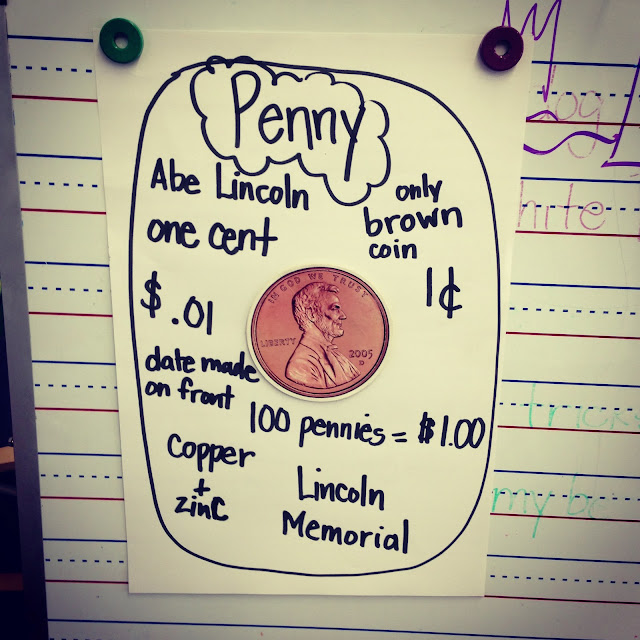 Penny
Abe Lincoln
one cent
only
brown
coin
$.01
1¢
IN GOD WE TRUST
LIBERTY
2005
D
date made
on front
100 pennies = $1.00
Copper
+
zinc
Lincoln
Memorial
my